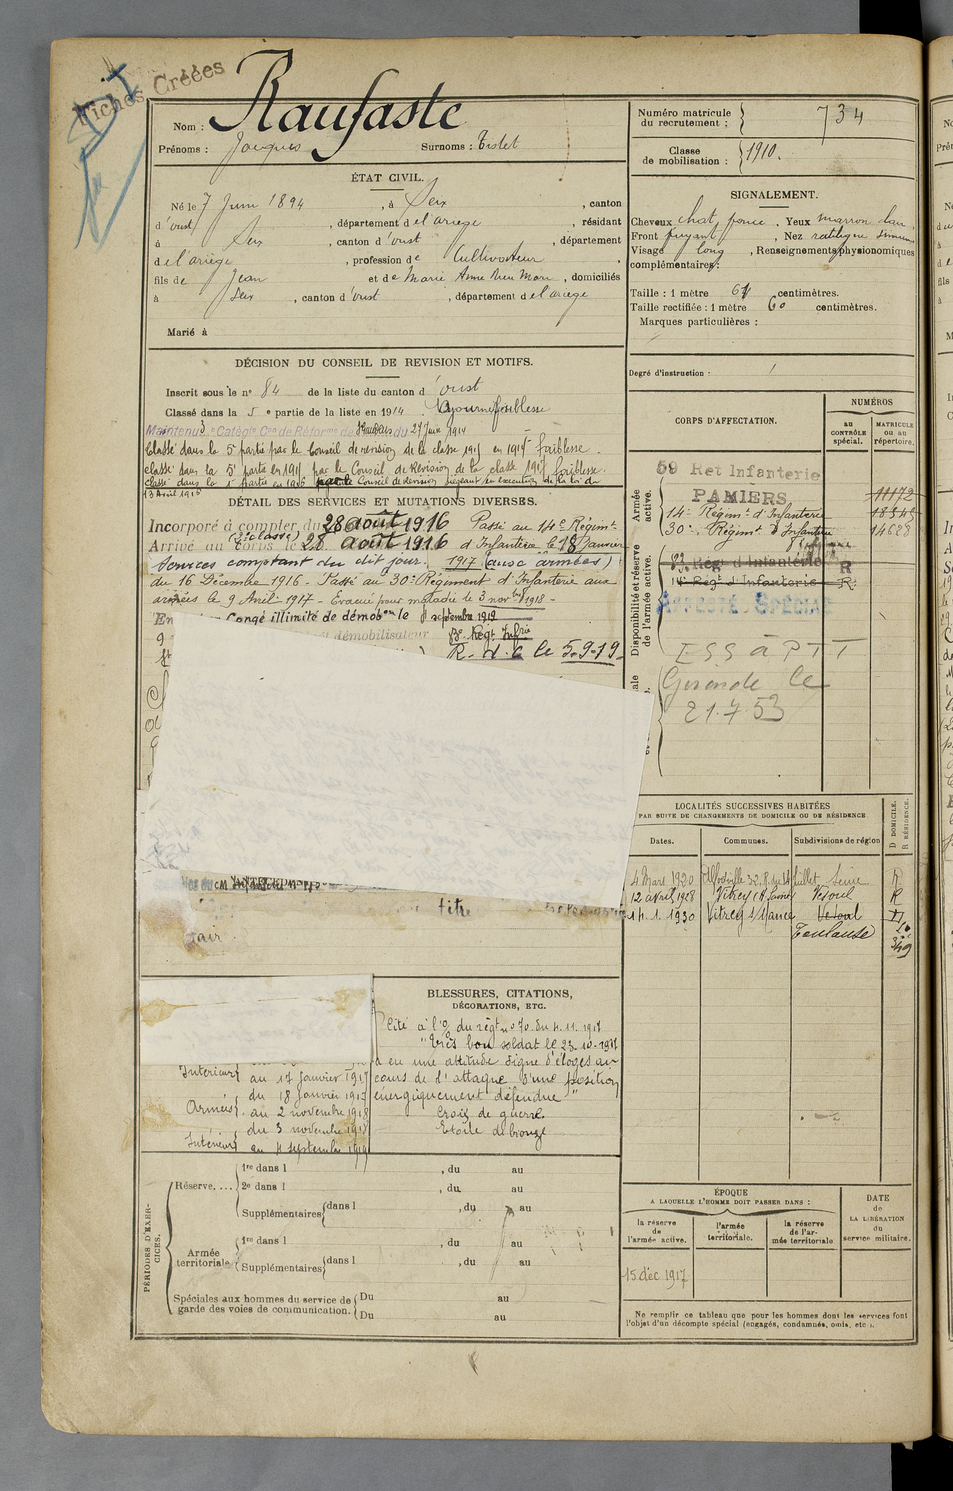 Fiches Créées
Nom : Raufaste
Prénoms : Jacques Surnoms : Tistet
ÉTAT CIVIL.
Né le 7 Juin 1894, à Seix, canton
d'oust, département de l'ariège, résidant
à Seix, canton d'oust, département
de l'ariège, profession de Cultivateur
fils de Jean et de Marie Anne, domiciliés
à Seix, canton d'oust, département de l'ariège
Marié à
DÉCISION DU CONSEIL DE REVISION ET MOTIFS.
Inscrit sous le n° 84 de la liste du canton d'oust
Classé dans la 5e partie de la liste en 1914. Ajourné faiblesse
Maintenu 3e Catégie Con de Réforme de du 27 Juin 1914
Classé dans la 5e partie par le Conseil de revision de la classe 1915 en 1915 faiblesse.
Classé dans la 5e partie en 1915 par le Conseil de Révision de la classe 1917 faiblesse.
Classé dans la 1e partie en 1916 par le Conseil de revision siégeant en execution de la loi du
13 Avril 1916
DÉTAIL DES SERVICES ET MUTATIONS DIVERSES.
Incorporé à compter du 28 août 1916 Passé au 14e Régimt
(2e classe)
Arrivé au Corps le 28 août 1916 d'Infanterie le 18 Janvier
Services comptant du dit jour. 1917 (aux armées)
du 16 Décembre 1916 - Passé au 30e Régiment d'Infanterie aux
armées le 9 Avril 1917 - Evacué pour maladie le 3 novbre 1918 -
En Congé illimité de démobon le septembre 1919
démobilisateur Régt Infrie
R. d. C le 5-9-19
titre
BLESSURES, CITATIONS,
DÉCORATIONS, ETC.
Cité à l'O/ du régt n° 70 du 4.11.1917
"Très bon soldat le 23-10-1917
a eu une attitude digne d'éloges au
cours de l'attaque d'une position
énergiquement défendue"
Croix de guerre
Etoile de bronze
Intérieur au 17 Janvier 1917
du 18 Janvier 1917
Armées au 2 novembre 1918
du 3 novembre 1918
Intérieur au 4 septembre 1919
PÉRIODES D'EXERCICES.
Réserve.... 1re dans l , du au
2e dans l , du au
Supplémentaires dans l , du au
Armée territoriale 1re dans l , du au
Supplémentaires dans l , du au
Spéciales aux hommes du service de garde des voies de communication. Du au
Du au
Numéro matricule du recrutement : 734
Classe de mobilisation : 1910.
SIGNALEMENT.
Cheveux chat. foncé, Yeux marron clair
Front fuyant, Nez rectiligne
Visage long, Renseignements physionomiques
complémentaires :
Taille : 1 mètre 61 centimètres.
Taille rectifiée : 1 mètre 60 centimètres.
Marques particulières :
Degré d'instruction :
CORPS D'AFFECTATION.
NUMÉROS
AU CONTRÔLE spécial.
MATRICULE OU AU répertoire.
Armée active.
59 Ret Infanterie
PAMIERS 11172
14e Régimt d'Infanterie 15345
30e Régimt d'Infanterie 14628
Disponibilité et réserve de l'armée active.
Régt d'Infanterie R
14e Régt d'Infanterie R.
Affecté Spécial
ESS à PTT
Gironde le
21.7.53
LOCALITÉS SUCCESSIVES HABITÉES
PAR SUITE DE CHANGEMENTS DE DOMICILE OU DE RÉSIDENCE
Dates. Communes. Subdivisions de région D DOMICILE. R RÉSIDENCE.
4 Mars 1920 Alfortville 32, R. du 14 Juillet Seine R
12 avril 1928 Vitrey (H. Saône) Vesoul R
14.1.1930 Vitrey S/Mance Vesoul
Toulouse
349
ÉPOQUE
A LAQUELLE L'HOMME DOIT PASSER DANS :
la réserve de l'armée active.
l'armée territoriale.
la réserve de l'armée territoriale
DATE de LA LIBÉRATION du service militaire.
15 déc 1917
Ne remplir ce tableau que pour les hommes dont les services font
l'objet d'un décompte spécial (engagés, condamnés, omis, etc.).